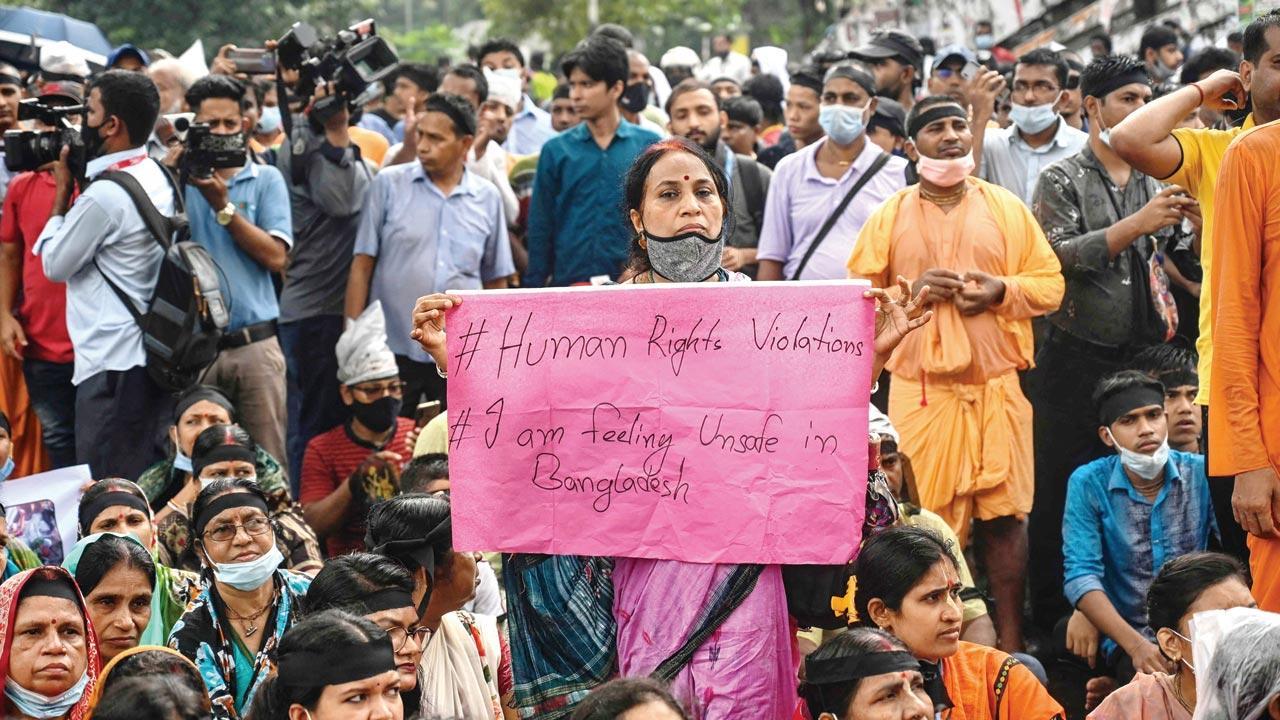 # Human Rights Violations
# I am feeling Unsafe in
Bangladesh